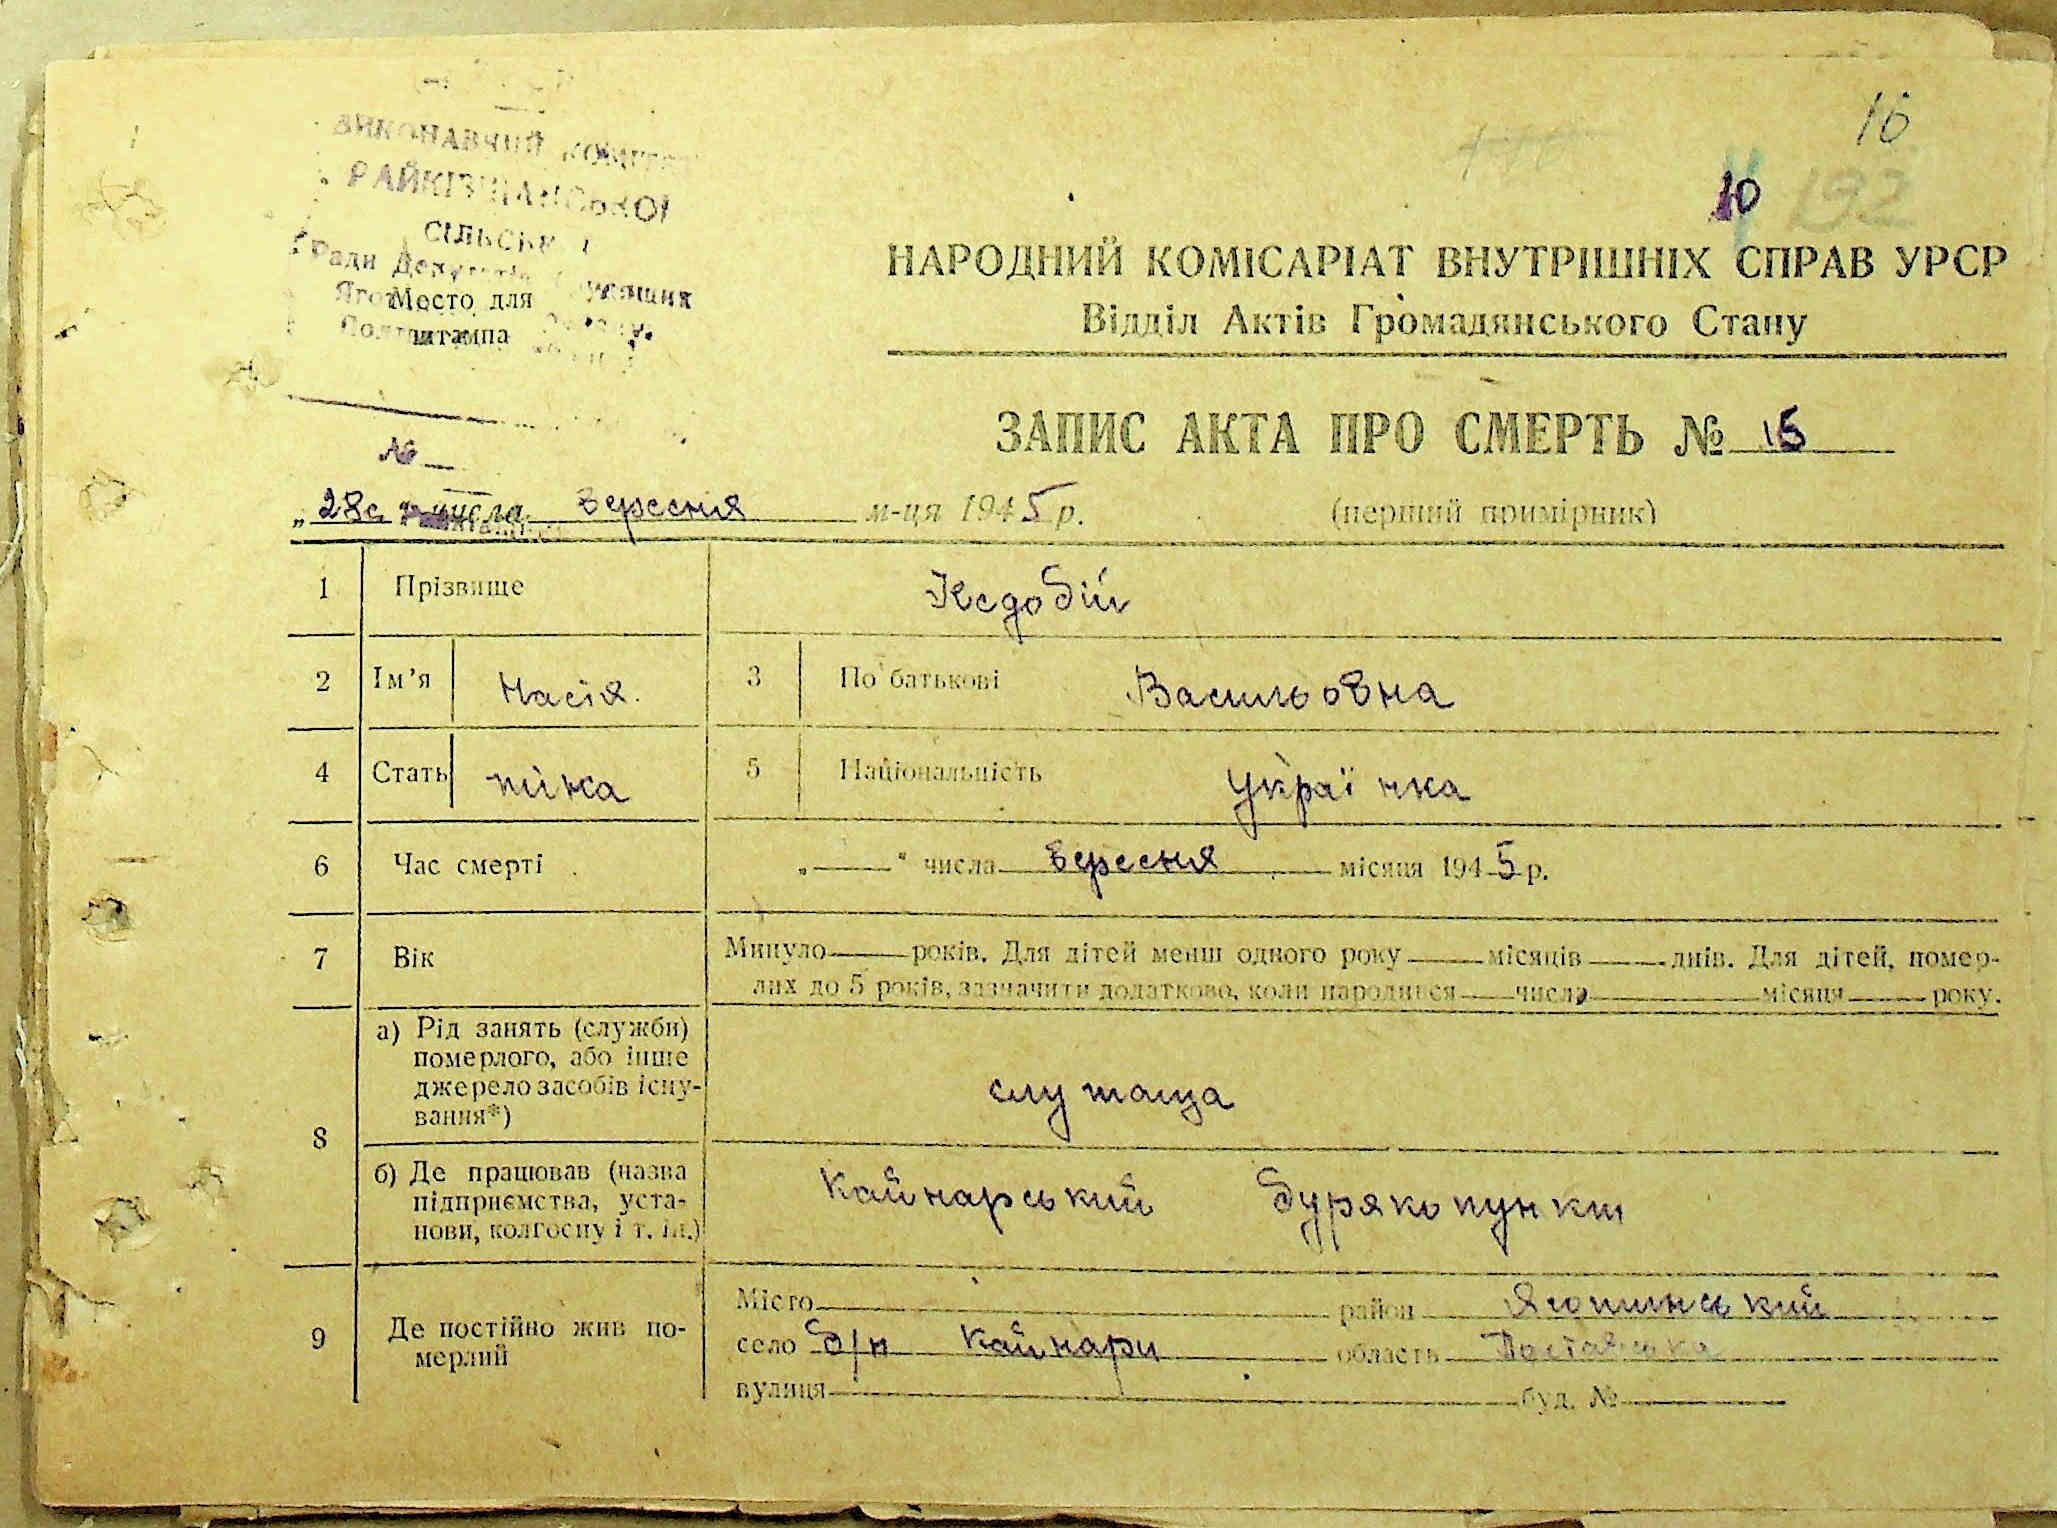 16
10 192
ВИКОНАВЧИЙ КОМІТЕТ
СІЛЬСЬК
Ради Депутатів
Место для
штампа
НАРОДНИЙ КОМІСАРІАТ ВНУТРІШНІХ СПРАВ УРСР
Відділ Актів Громадянського Стану
ЗАПИС АКТА ПРО СМЕРТЬ № 15
№
„28 числа вересня м-ця 1945 р. (перший примірник)
1 Прізвище Кедобій
2 Ім’я Насія. 3 По батькові Васильовна
4 Стать жінка 5 Національність Українка
6 Час смерті „—“ числа вересня місяця 1945 р.
7 Вік Минуло — років. Для дітей менш одного року — місяців — днів. Для дітей, помер-
лих до 5 років, зазначити додатково, коли народився — числа — місяця — року.
8 а) Рід занять (служби)
померлого, або інше
джерело засобів існу-
вання*)
служаща
б) Де працював (назва
підприємства, уста-
нови, колгоспу і т. ін.)
Кайнарський бурякопункт
9 Де постійно жив по-
мерлий
Місто район Яготинський
село б/п Кайнари область Полтавська
вулиця буд. №